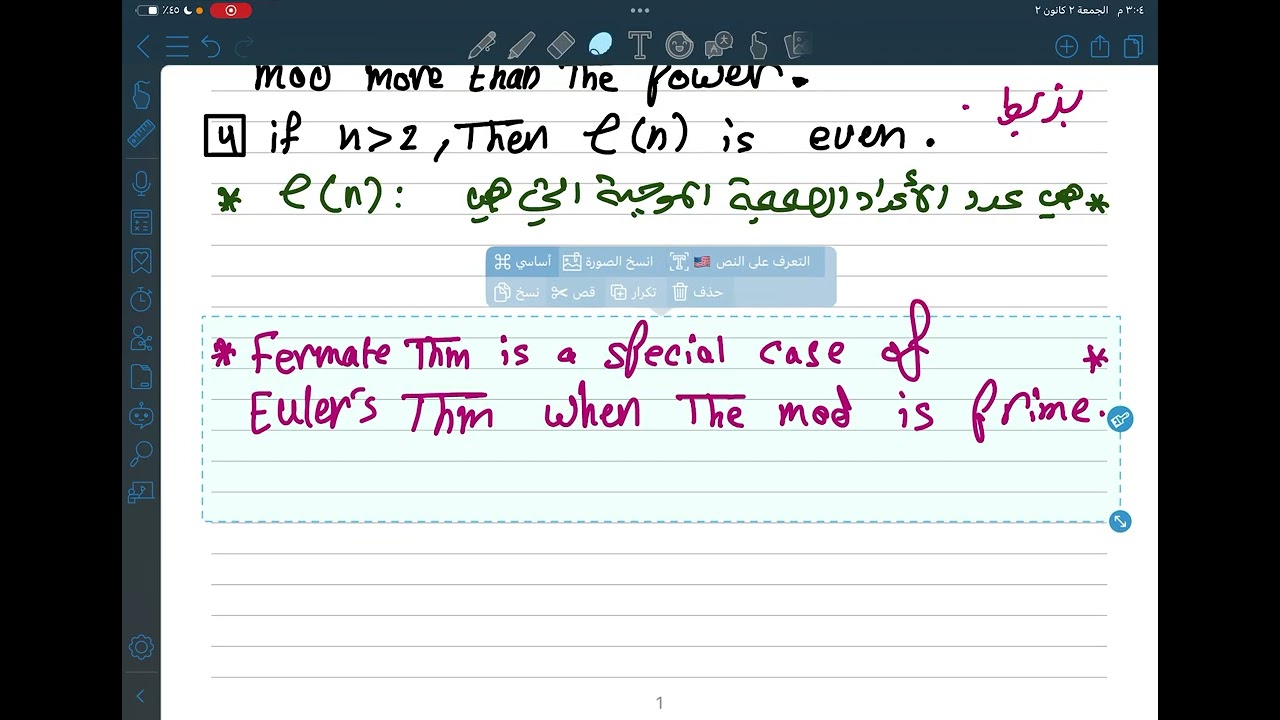 ٣:٠٤ م الجمعة ٢ كانون ٢
٤٥٪
mod more than The power.
4 if n>2, Then φ(n) is even.
بزبط
* φ(n): هي عدد الأعداد الصحيحة الموجبة التي هي *
أساسي انسخ الصورة التعرف على النص
نسخ قص تكرار حذف
* Fermate Thm is a special case of *
Euler's Thm when The mod is prime.
1